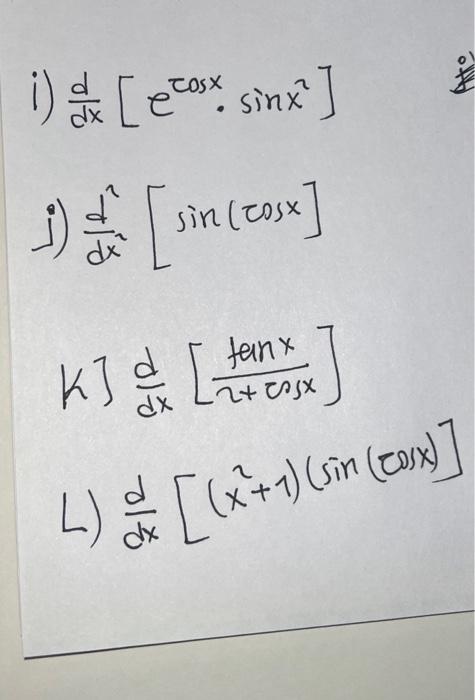 i) d/dx [e^cosx · sinx²]
j) d²/dx² [sin(cosx]
K] d/dx [tanx / 2+cosx]
L) d/dx [(x²+1)(sin(cosx)]